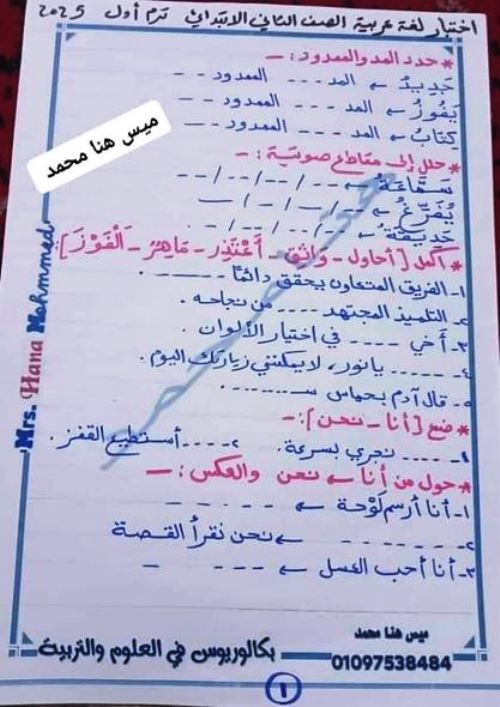 اختبار لغة عربية الصف الثاني الابتدائي ترم أول 2025
* حدد المد والممدود :-
جَدِيدٌ ← المد --- الممدود ---
يَفُوزُ ← المد --- الممدود ---
كِتَابُ ← المد --- الممدود ---
ميس هنا محمد
* حلل إلى مقاطع صوتية :-
سَمَّاعَةٌ ← --/--/--/--
يُفَرِّغُ ← --/--/--/--
حَدِيقَةٌ ← --/--/--/--
* أكمل [أحاول - واثق - أَعْتَذِر - مَاهِرٌ - الْفَوْزَ]:
١- الفريق المتعاون يحقق دائمًا ------.
٢- التلميذ المجتهد ---- من نجاحه.
٣- أَخي ---- في اختيار الألوان.
٤- ----- يانور، لا يمكنني زيارتك اليوم.
٥- قال آدم بحماس سـ --------.
* ضع [أنا - نحن]:-
١- ---- نجري بسرعة. ٢- ---- أستطيع القفز.
* حول من أنا ← نحن والعكس :-
١- أنا أرسم لَوْحة ← ------
٢- ------- ← نحن نقرأ القصة
٣- أنا أحب العسل ← ---- -
Mrs. Hana Mohmmed
ميس هنا محمد
01097538484
بكالوريوس في العلوم والتربية
١